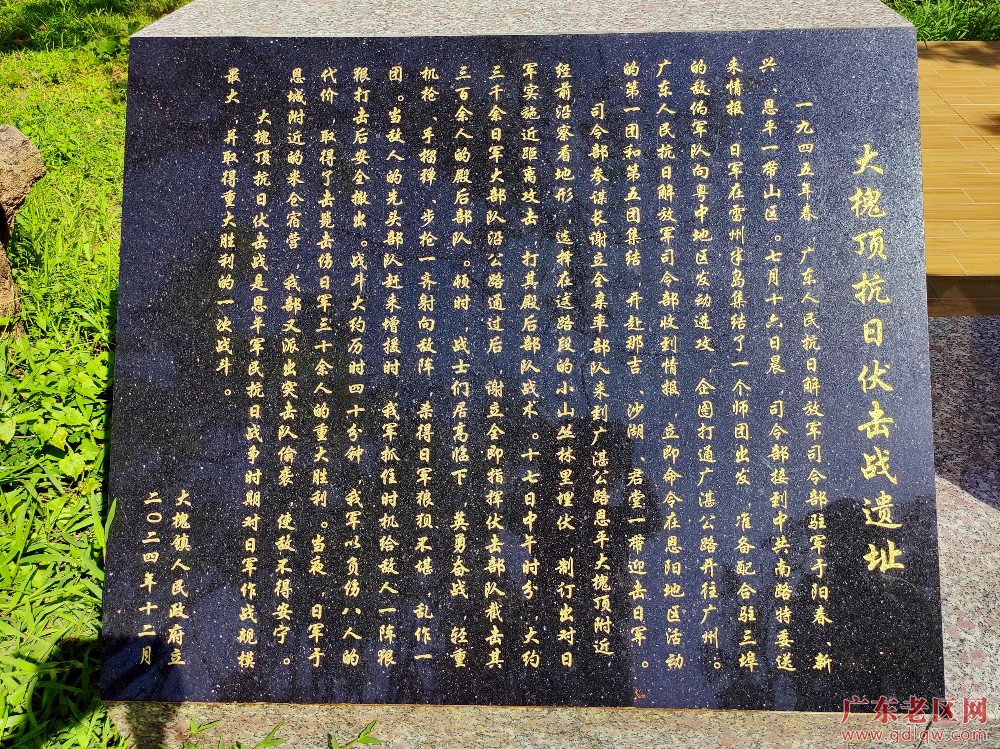 大槐顶抗日伏击战遗址
一九四五年春，广东人民抗日解放军司令部驻军于阳春、新
兴、恩平一带山区。七月十六日晨，司令部接到中共南路特委送
来情报，日军在雷州半岛集结了一个师团出发，准备配合驻三埠
的敌伪军队向粤中地区发动进攻，企图打通广湛公路开往广州。
广东人民抗日解放军司令部收到情报，立即命令在恩阳地区活动
的第一团和第五团集结，开赴那吉、沙湖、君堂一带迎击日军。
司令部参谋长谢立全亲率部队来到广湛公路恩平大槐顶附近，
经前沿察看地形，选择在这路段的小山丛林里埋伏，制订出对日
军实施近距离攻击，打其殿后部队战术。十七日中午时分，大约
三千余日军大部队沿公路通过后，谢立全即指挥伏击部队截击其
三百余人的殿后部队。顿时，战士们居高临下，英勇奋战，轻重
机枪、手榴弹、步枪一齐射向敌阵，杀得日军狼狈不堪，乱作一
团。当敌人的先头部队赶来增援时，我军抓住时机给敌人一阵狠
狠打击后安全撤出。战斗大约历时四十分钟，我军以负伤八人的
代价，取得了击毙击伤日军三十余人的重大胜利。当夜，日军于
恩城附近的米仓宿营，我部又派出突击队偷袭，使敌不得安宁。
大槐顶抗日伏击战是恩平军民抗日战争时期对日军作战规模
最大，并取得重大胜利的一次战斗。
大槐镇人民政府立
二〇二四年十二月
广东老区网
www.gdlqw.com